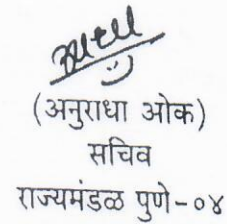 (अनुराधा ओक)
सचिव
राज्यमंडळ पुणे-०४